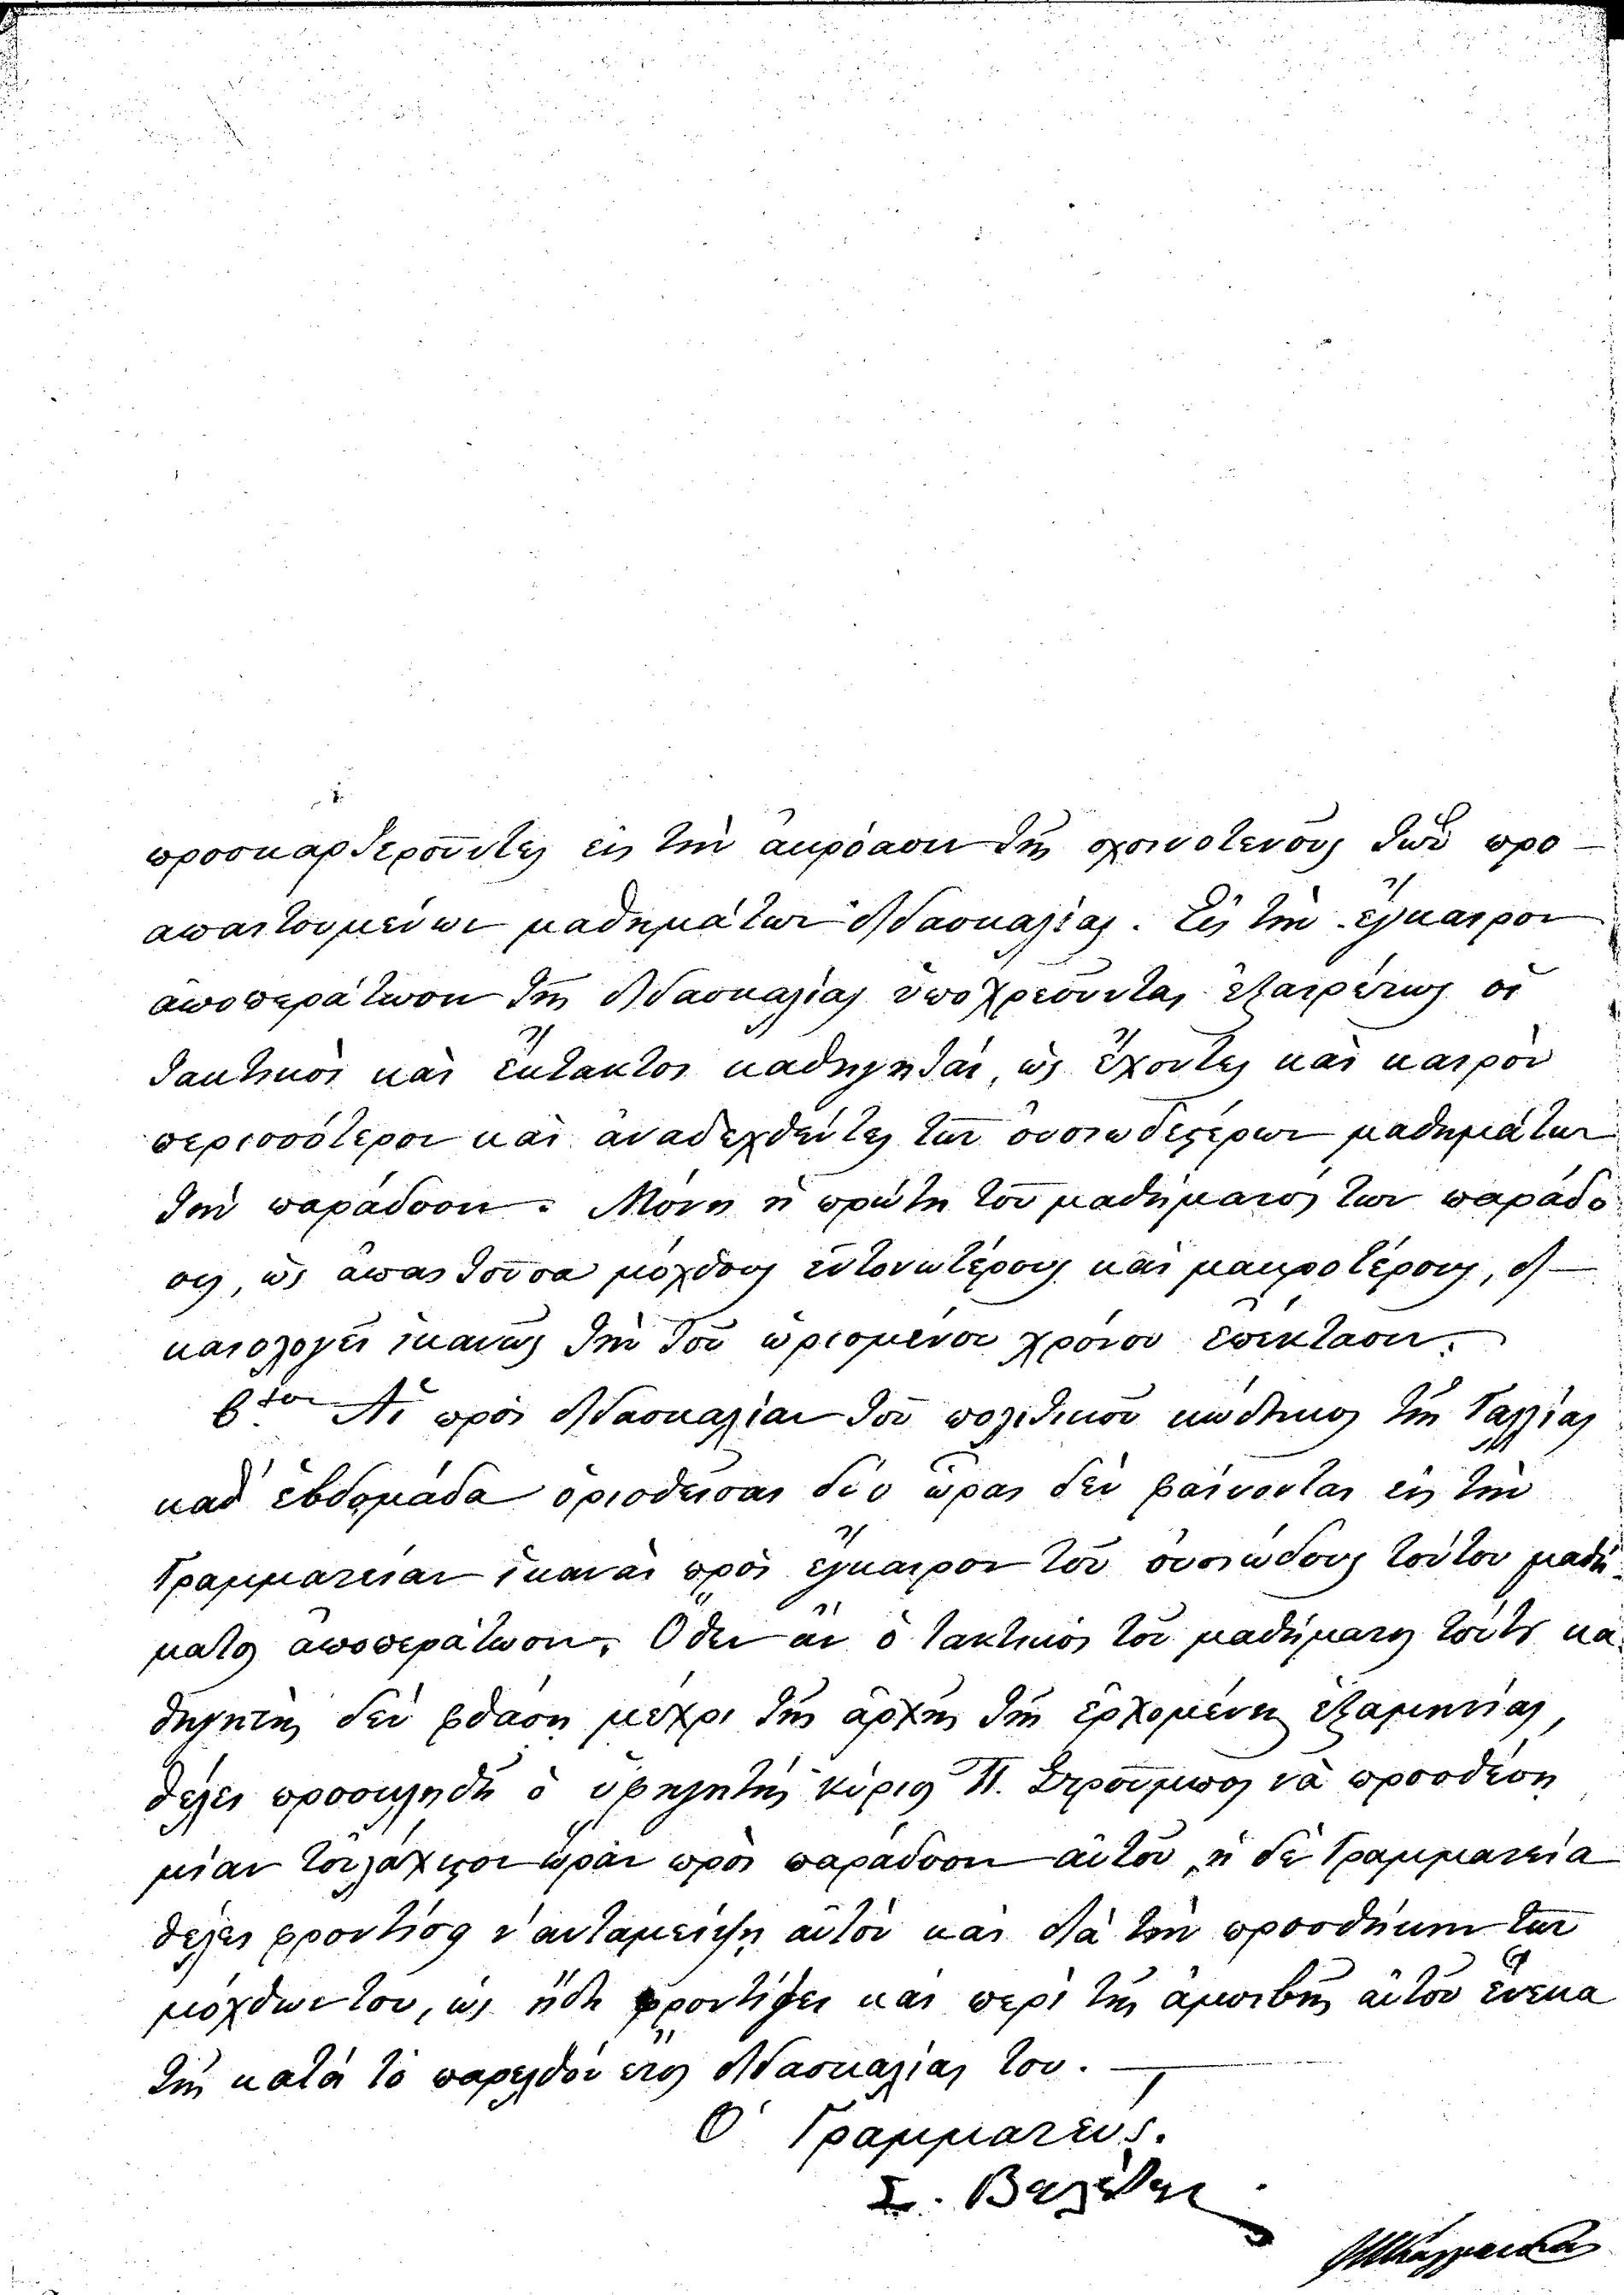 προσκαρτεροῦντες εἰς τὴν ἀκρόασιν τῆς σχοινοτενοῦς τῶν προ-
απαιτουμένων μαθημάτων διδασκαλίας. Εἰς τὴν ἔγκαιρον
ἀποπεράτωσιν τῆς διδασκαλίας ὑποχρεοῦνται ἐξαιρέτως οἱ
τακτικοὶ καὶ ἔκτακτοι καθηγηταί, ὡς ἔχοντες καὶ καιρὸν
περισσότερον καὶ ἀναδεχθέντες τῶν οὐσιωδεστέρων μαθημάτων
τὴν παράδοσιν. Μόνη ἡ πρώτη τοῦ μαθήματός των παράδο
σις, ὡς ἀπαιτοῦσα μόχθους εὐτονωτέρους καὶ μακροτέρους, δι-
καιολογεῖ ἱκανῶς τὴν τοῦ ὡρισμένου χρόνου ἐπέκτασιν.
βτον Αἱ πρὸς διδασκαλίαν τοῦ πολιτικοῦ κώδικος τῆς Γαλλίας
καθ' ἑβδομάδα ὁρισθεῖσαι δύο ὧραι δὲν φαίνονται εἰς τὴν
Γραμματείαν ἱκαναὶ πρὸς ἔγκαιρον τοῦ οὐσιώδους τούτου μαθή-
ματος ἀποπεράτωσιν. Ὅθεν ἂν ὁ τακτικὸς τοῦ μαθήματος τούτου κα-
θηγητὴς δὲν φθάσῃ μέχρι τῆς ἀρχῆς τῆς ἐρχομένης ἑξαμηνίας,
θέλει προσκληθῆ ὁ ὑφηγητὴς κύριος Π. Στροῦμπος νὰ προσθέσῃ
μίαν τοὐλάχιστον ὥραν πρὸς παράδοσιν αὐτοῦ, ἡ δὲ Γραμματεία
θέλει φροντίσῃ ν' ἀνταμείψῃ αὐτὸν καὶ διὰ τὴν προσθήκην τῶν
μόχθων του, ὡς ἤδη φροντίζει καὶ περὶ τῆς ἀμοιβῆς αὐτοῦ ἕνεκα
τῆς κατὰ τὸ παρελθὸν ἔτος διδασκαλίας του.
Ὁ Γραμματεύς.
Σ. Βαλέτας